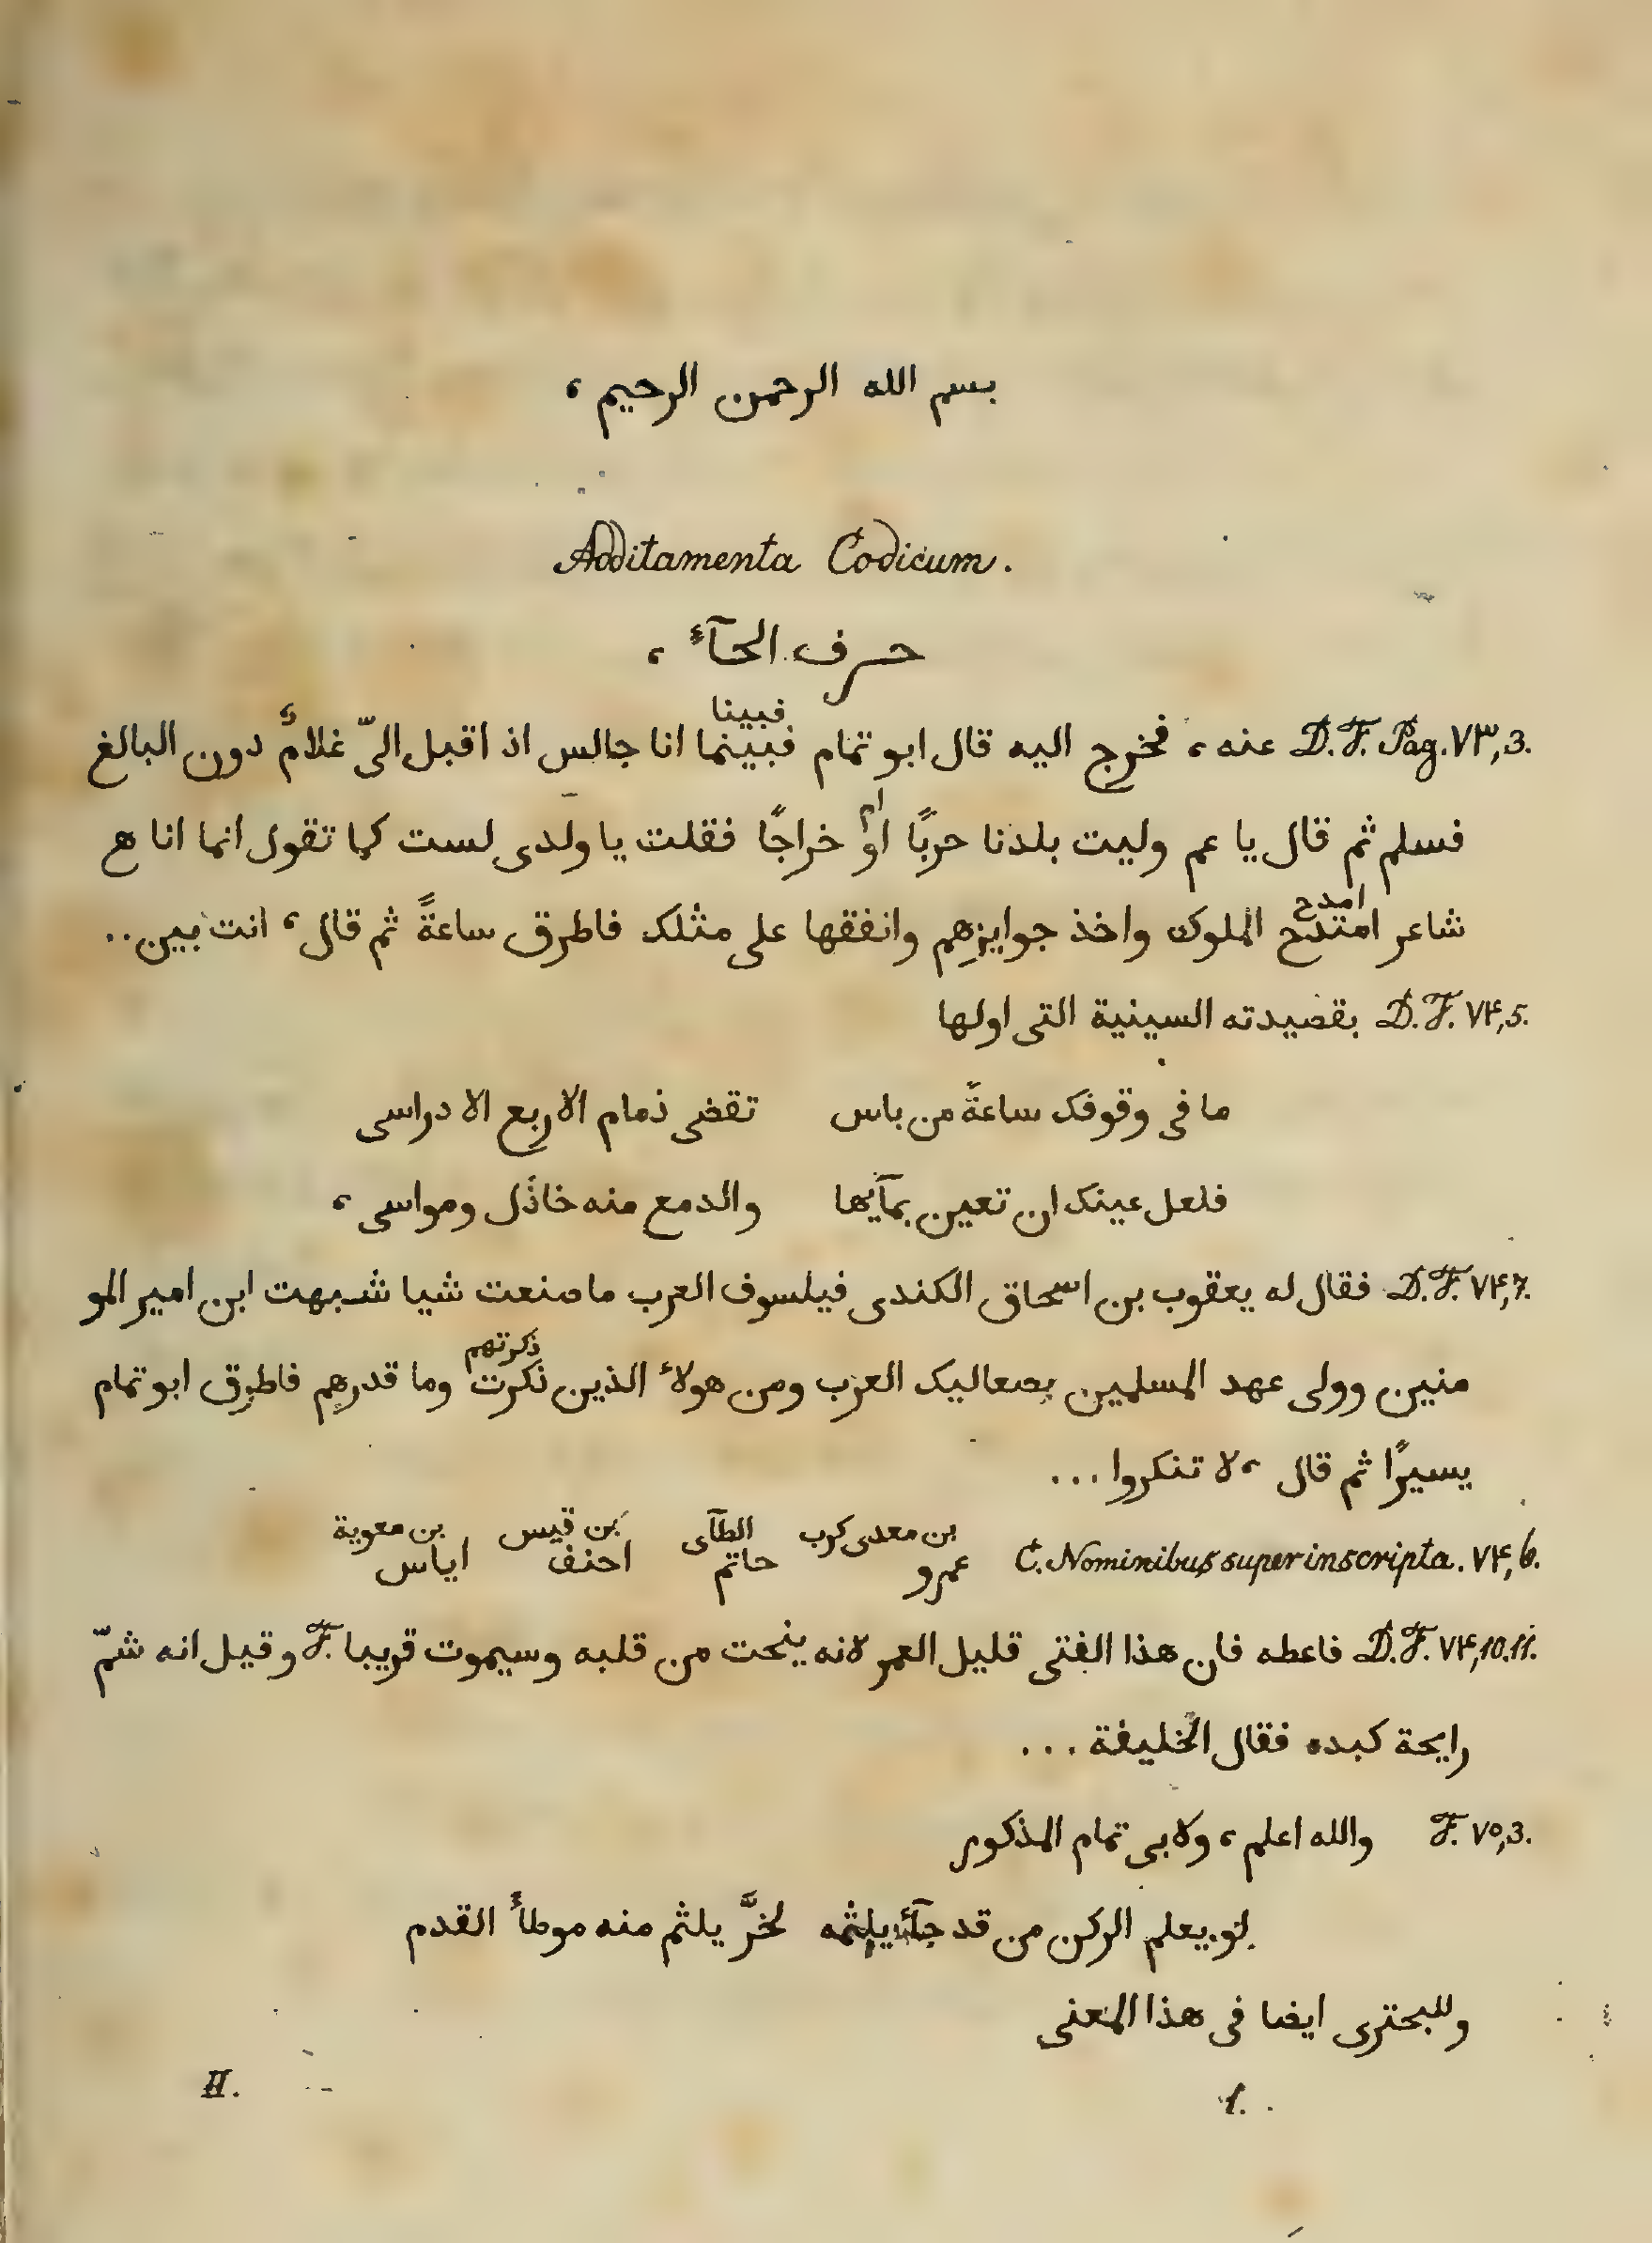 بسم الله الرحمن الرحيم ،
Additamenta Codicum.
حرف الحآء ،
فبينا
D. F. Pag. ٧٣,3. عنه ، فخرج اليه قال ابو تمام فبينما انا جالس اذ اقبل الىّ غلامٌ دون البالغ
ام
فسلم ثم قال يا عم وليت بلدنا حربًا او خراجًا فقلت يا ولدى لست كما تقول انما انا هج
امدح
شاعر امتدح الملوك واخذ جوايزهم وانفقها على مثلك فاطرق ساعةً ثم قال ، انت بين..
D. F. ٧۴,5. بقصيدته السينية التى اولها
ما فى وقوفك ساعةً من باس تقضى ذمام الاربع الادراسى
فلعل عينك ان تعين بمآيها والدمع منه خاذل ومواسى ،
D. F. ٧۴,7. فقال له يعقوب بن اسحاق الكندى فيلسوف العرب ما صنعت شيا شبهت ابن امير المو
ذكرتهم
منين وولى عهد المسلمين بصعاليك العرب ومن هولاء الذين ذكرت وما قدرهم فاطرق ابو تمام
يسيرًا ثم قال ، لا تنكروا ...
بن معدى كرب الطآى بن قيس بن معوية
C. Nominibus superinscripta. ٧۴,6. عمرو حاتم احنف اياس
D. F. ٧۴,10.11. فاعطه فان هذا الفتى قليل العمر لانه ينحت من قلبه وسيموت قريبا F. وقيل انه شمّ
رايحة كبده فقال الخليفة ...
F. ٧٥,3. والله اعلم ، ولابى تمام المذكور
لو يعلم الركن من قد جآء يلثمه لخرَّ يلثم منه موطأ القدم
وللبحترى ايضا فى هذا المعنى
II. 1.